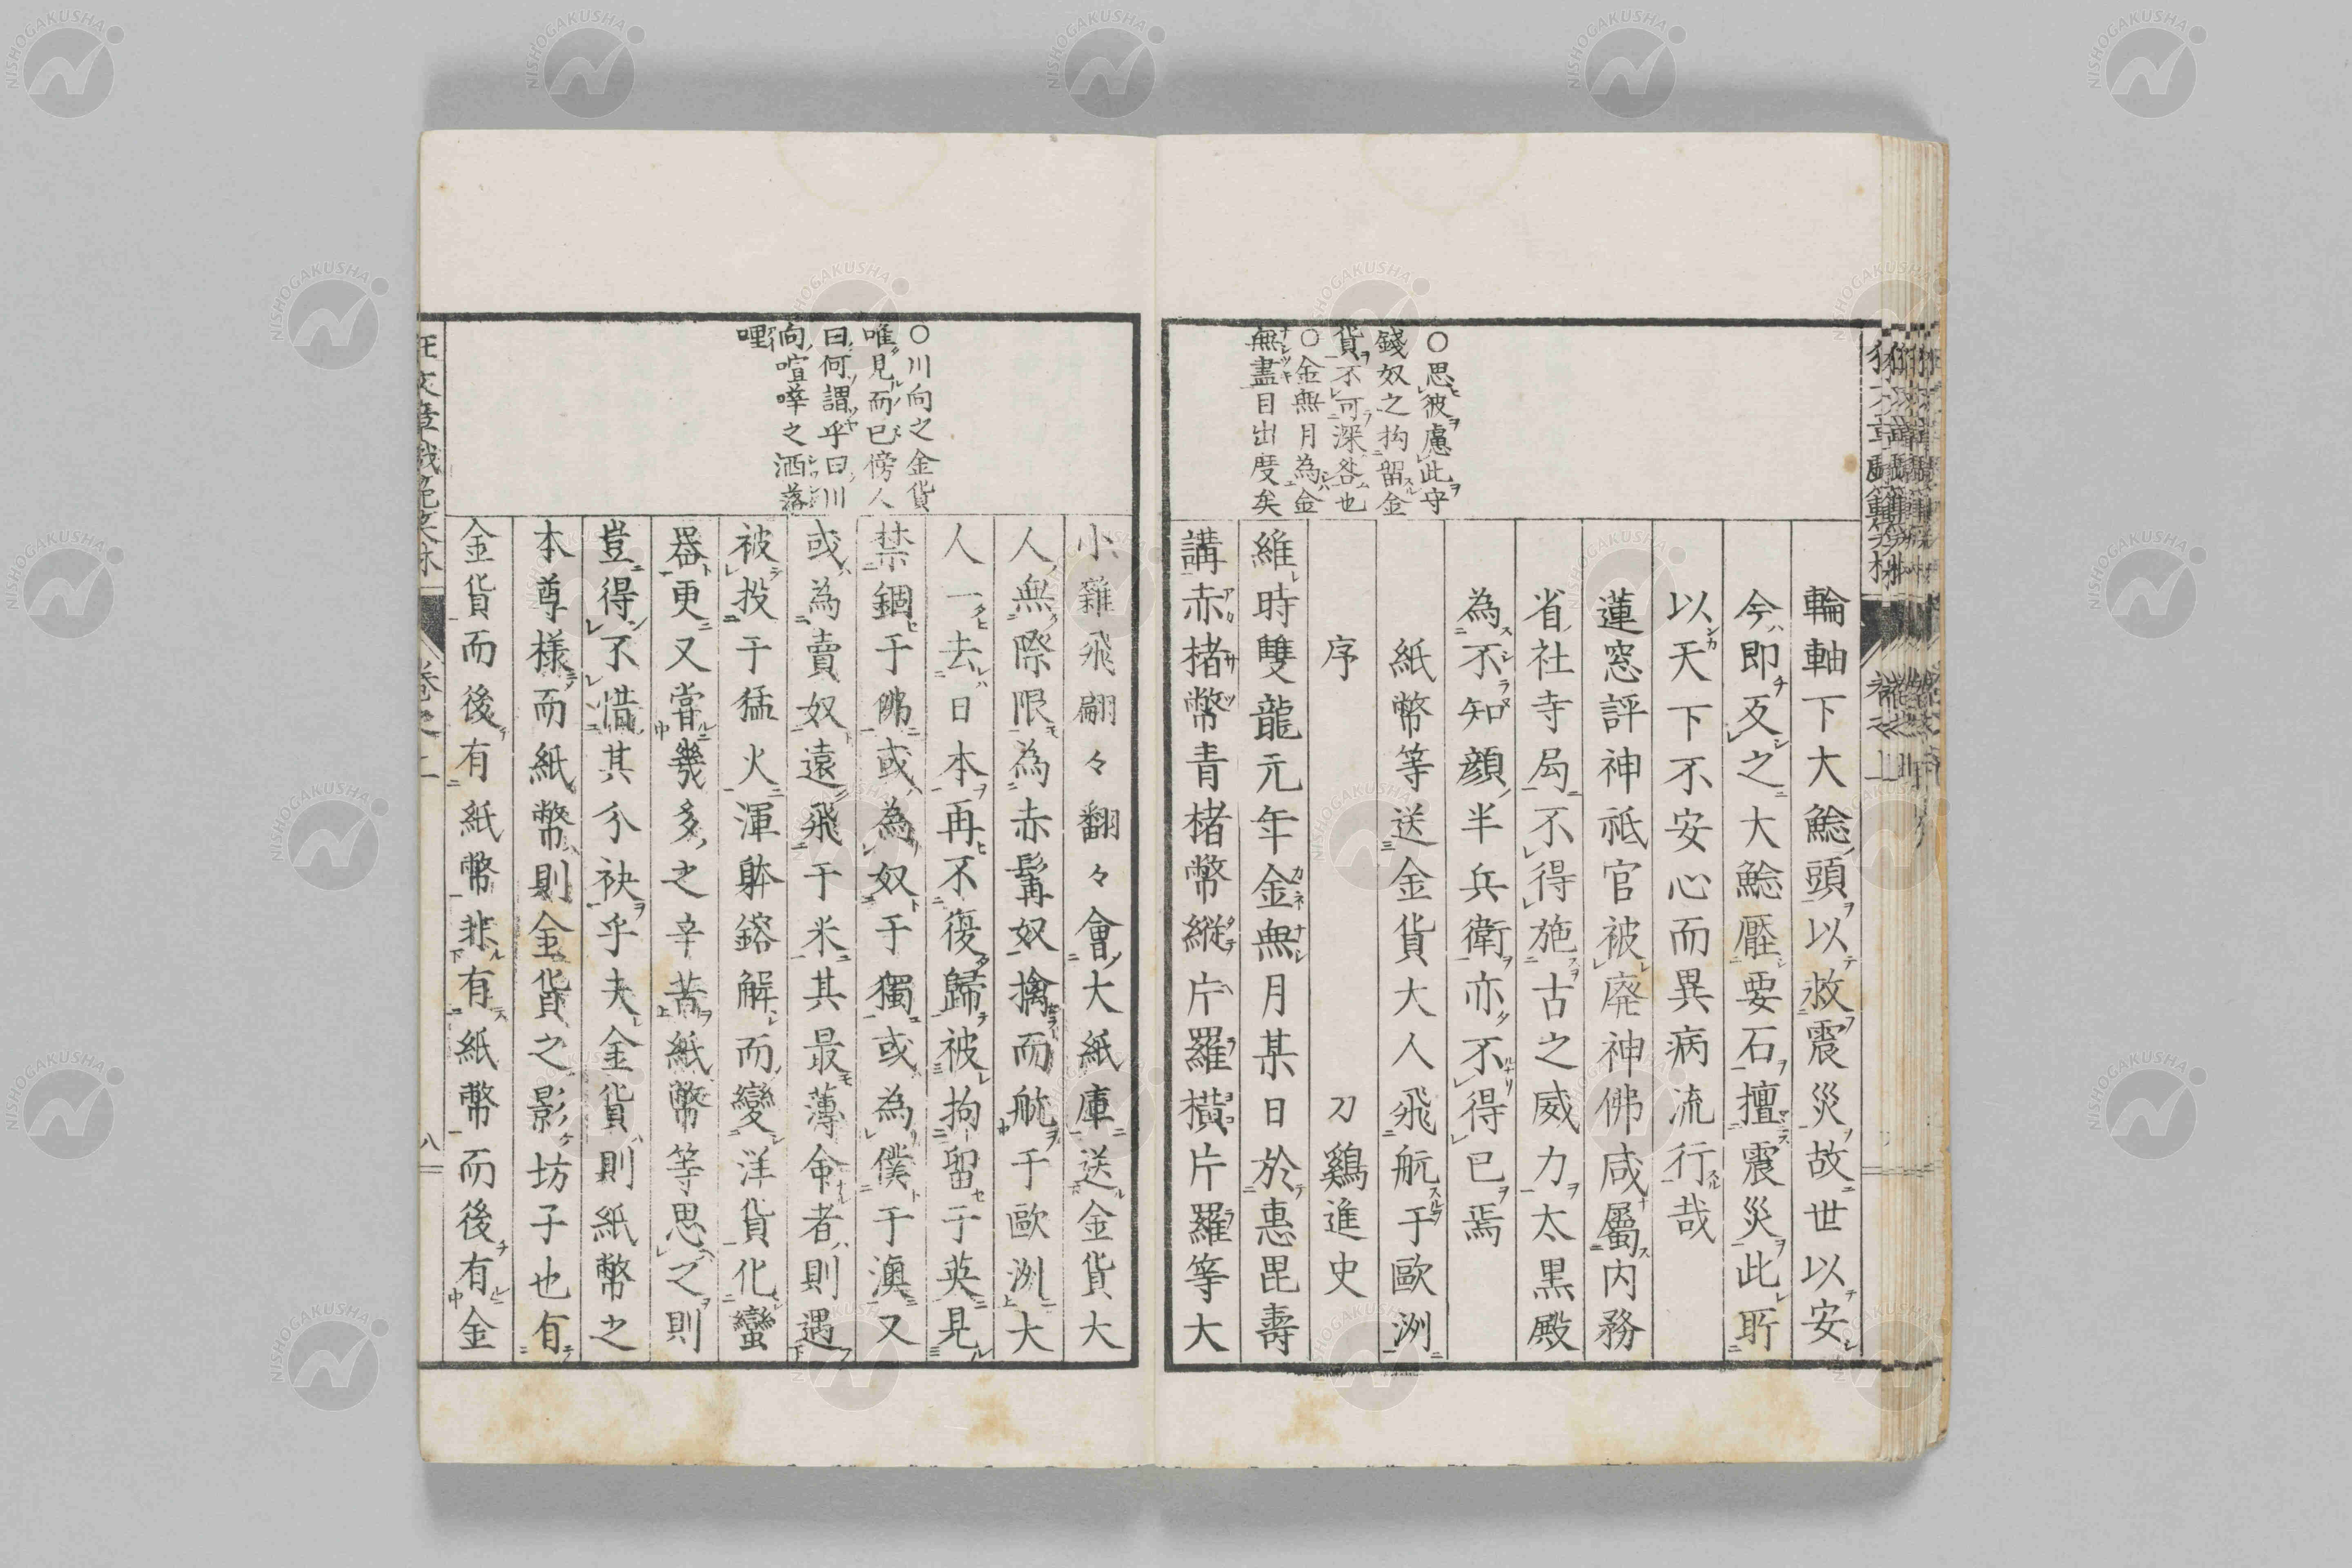 ○思彼慮此守
錢奴之拘留金
貨不可深咎也
○金無月為金
無盡目出度矣
輪軸下大鯰頭以救震災故世以安
今即反之大鯰壓要石擅震災此所
以天下不安心而異病流行哉
蓮窓評神祇官被廃神佛咸屬内務
省社寺局不得施古之威力太黒殿
為不知顔半兵衛亦不得已焉
紙幣等送金貨大人飛航于歐洲
序 刀鷄進史
維時雙龍元年金無月某日於惠毘壽
講赤楮幣青楮幣縦片羅橫片羅等大
○川向之金貨
唯見而已傍人
曰何謂乎曰川
向喧嘩之洒落
哩
小雞飛翩々翻々會大紙庫送金貨大
人無際限為赤髯奴擒而航于歐洲大
人一去日本再不復歸被拘留于英見
禁錮于佛或為奴于獨或為僕于澳又
或為賣奴遠飛于米其最薄命者則遇
被投于猛火渾躰鎔解而變洋貨化蠻
器更又嘗幾多之辛苦紙幣等思之則
豈得不惜其分袂乎夫金貨則紙幣之
本尊様而紙幣則金貨之影坊子也有
金貨而後有紙幣非有紙幣而後有金
狂文章戯範笑林 卷之二 八
NISHOGAKUSHA